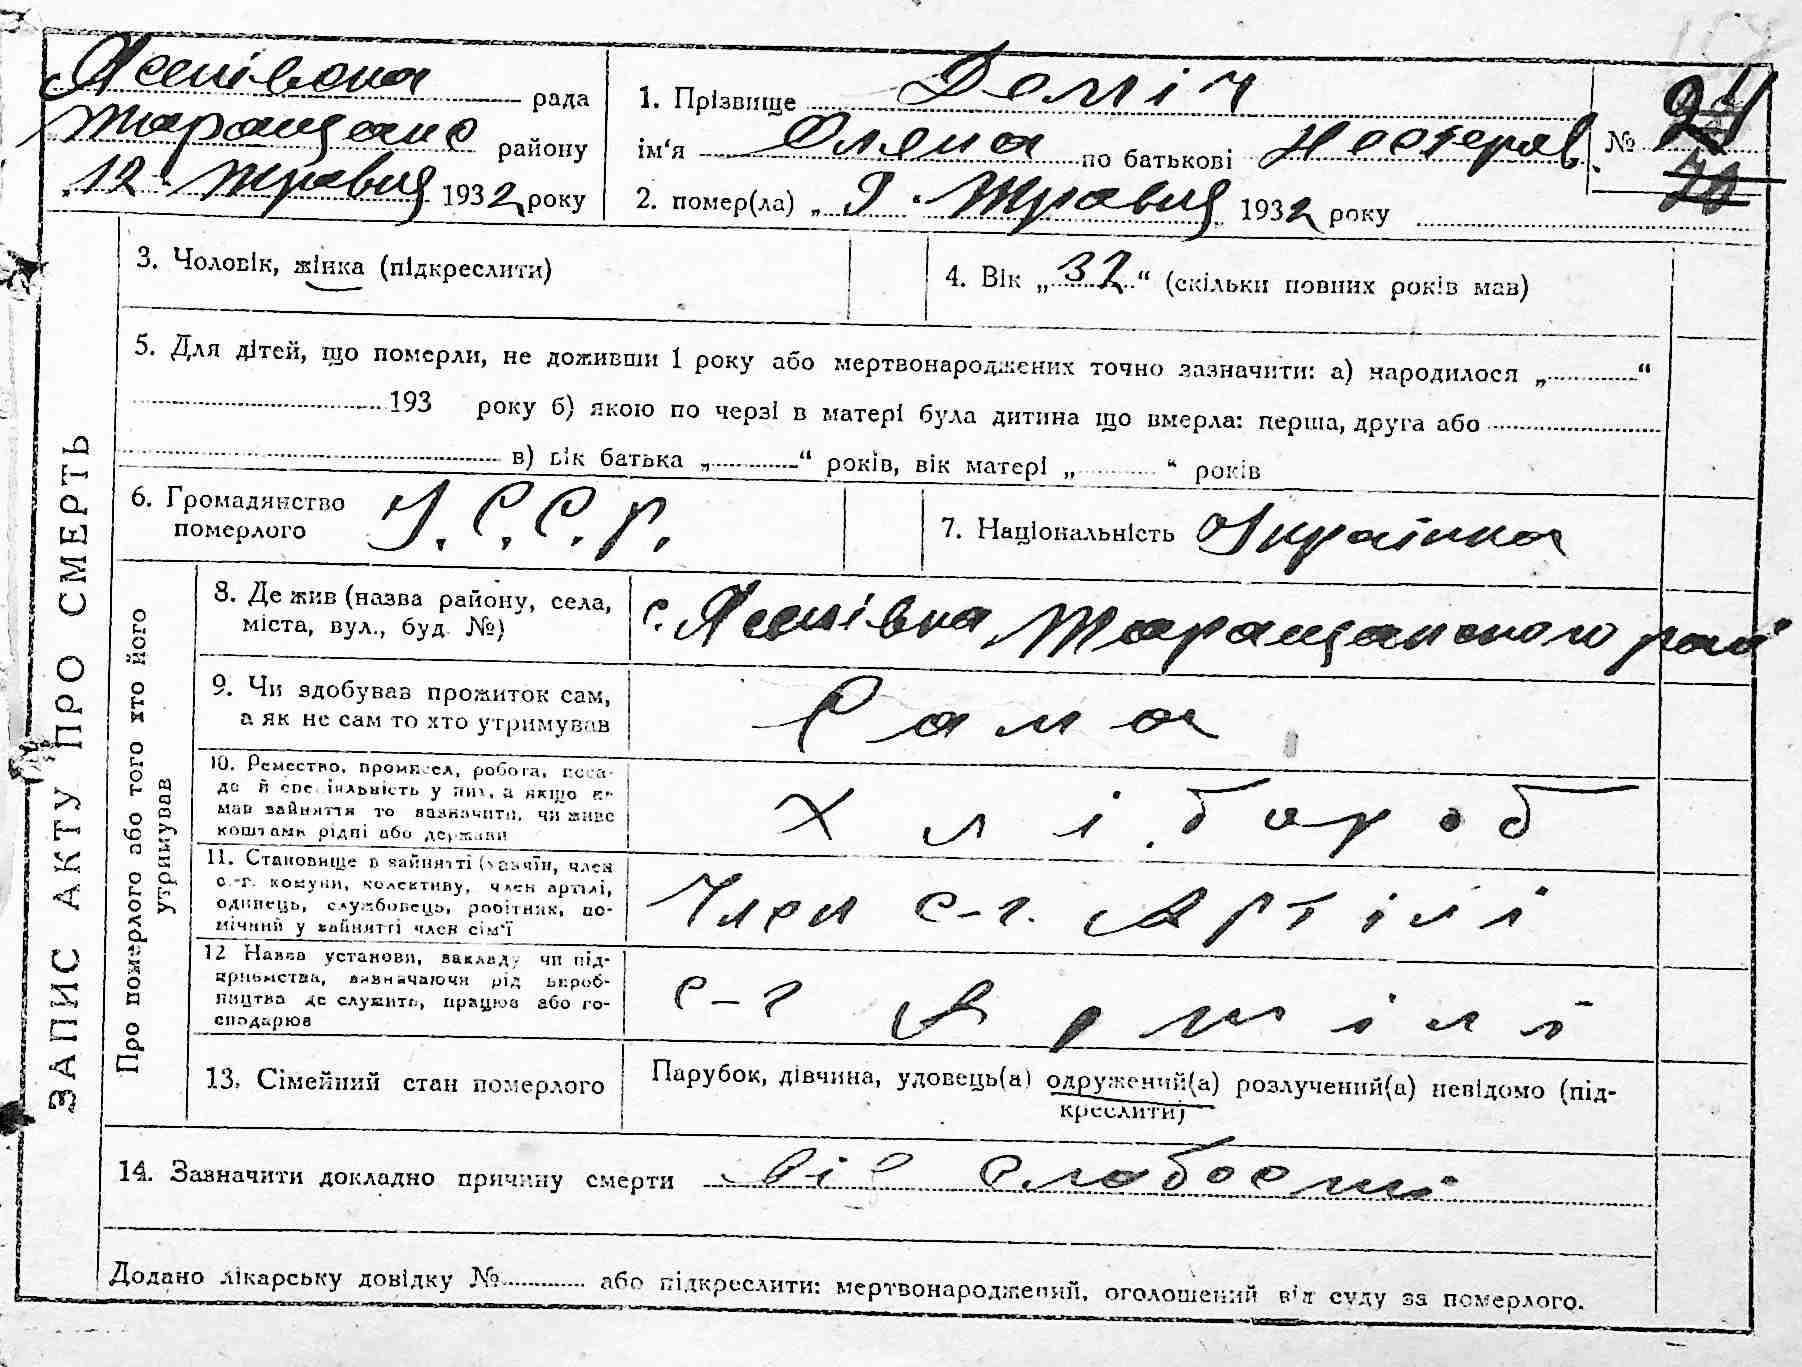 Ясенівська рада
Таращанс району
12 травня 1932 року
1. Прізвище Деміч
ім'я Олена по батькові Нестеров.
2. помер(ла) „ 9 " Травня 1932 року
№ 24
3. Чоловік, жінка (підкреслити)
4. Вік „ 32 “ (скільки повних років мав)
5. Для дітей, що померли, не доживши 1 року або мертвонароджених точно зазначити: а) народилося „ “
193 року б) якою по черзі в матері була дитина що вмерла: перша, друга або
в) вік батька „ “ років, вік матері „ “ років
6. Громадянство
померлого У.С.С.Р.
7. Національність Українка
ЗАПИС АКТУ ПРО СМЕРТЬ
Про померлого або того хто його
утримував
8. Де жив (назва району, села,
міста, вул., буд. №)
с. Ясенівка Таращанского рай
9. Чи здобував прожиток сам,
а як не сам то хто утримував
Сама
10. Ремество, промисел, робота, поса-
да й спеціяльність у них, а якщо не
мав зайняття то зазначити, чи живе
коштами рідні або держави
Хлібороб
11. Становище в зайнятті (хазяїн, член
с.-г. комуни, колективу, член артілі,
одинець, службовець, робітник, по-
мічний у зайнятті член сім'ї
Член с-г. Артілі
12 Назва установи, закладу чи під-
приємства, визначаючи рід вироб-
ництва де служить, працює або го-
сподарює
с-г Артілі
13. Сімейний стан померлого
Парубок, дівчина, удовець(а) одружений(а) розлучений(а) невідомо (під-
креслити)
14. Зазначити докладно причину смерти від слабости
Додано лікарську довідку № або підкреслити: мертвонароджений, оголошений від суду за померлого.